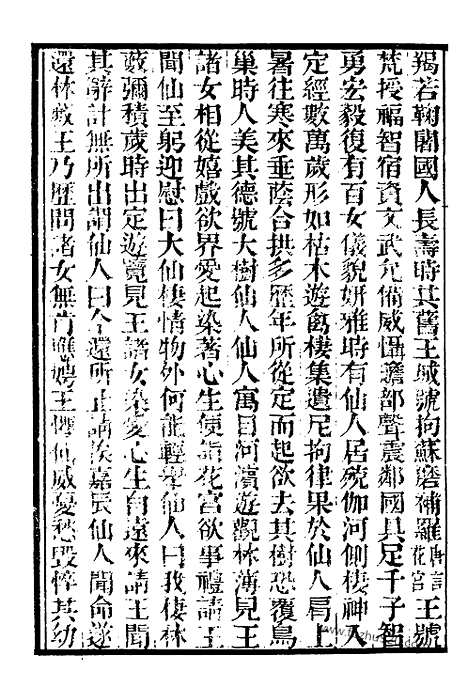 羯若鞠闍國人長壽時其舊王城號拘蘇磨補羅唐言花宮王號
梵授福智宿資文武允備威懾贍部聲震鄰國具足千子智
勇宏毅復有百女儀貌妍雅時有仙人居殑伽河側棲神入
定經數萬歲形如枯木遊禽棲集遺尼拘律果於仙人肩上
暑往寒來垂蔭合拱多歷年所從定而起欲去其樹恐覆鳥
巢時人美其德號大樹仙人仙人寓目河濱遊觀林薄見王
諸女相從嬉戲欲界愛起染著心生便詣花宮欲事禮請王
聞仙至躬迎慰曰大仙棲情物外何能輕舉仙人曰我棲林
藪彌積歲時出定遊覽見王諸女染愛心生自遠來請王聞
其辭計無所出謂仙人曰今還所止請俟嘉辰仙人聞命遂
還林藪王乃歷問諸女無肯應娉王懼仙威憂愁毀悴其幼